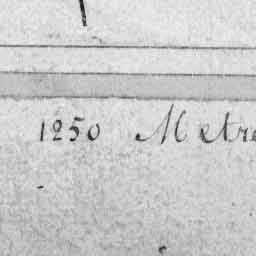 1250 Metre